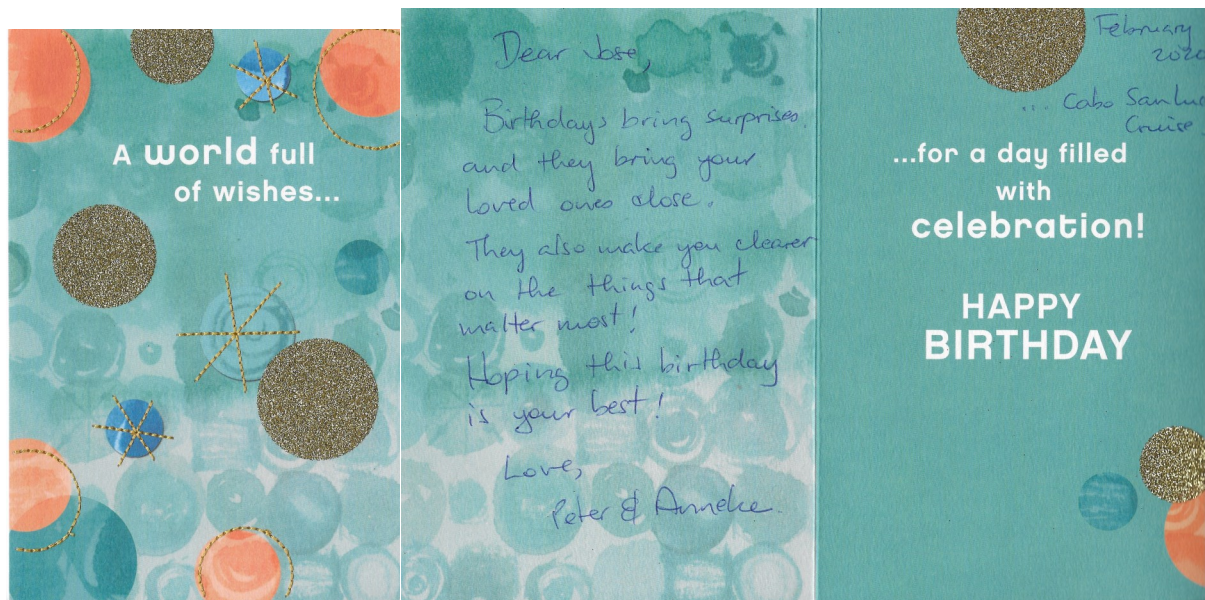 A world full
of wishes...
Dear Jose,
Birthdays bring surprises
and they bring your
loved ones close.
They also make you clearer
on the things that
matter most!
Hoping this birthday
is your best!
Love,
Peter & Anneke
February
... Cabo San
Cruise.
...for a day filled
with
celebration!
HAPPY
BIRTHDAY